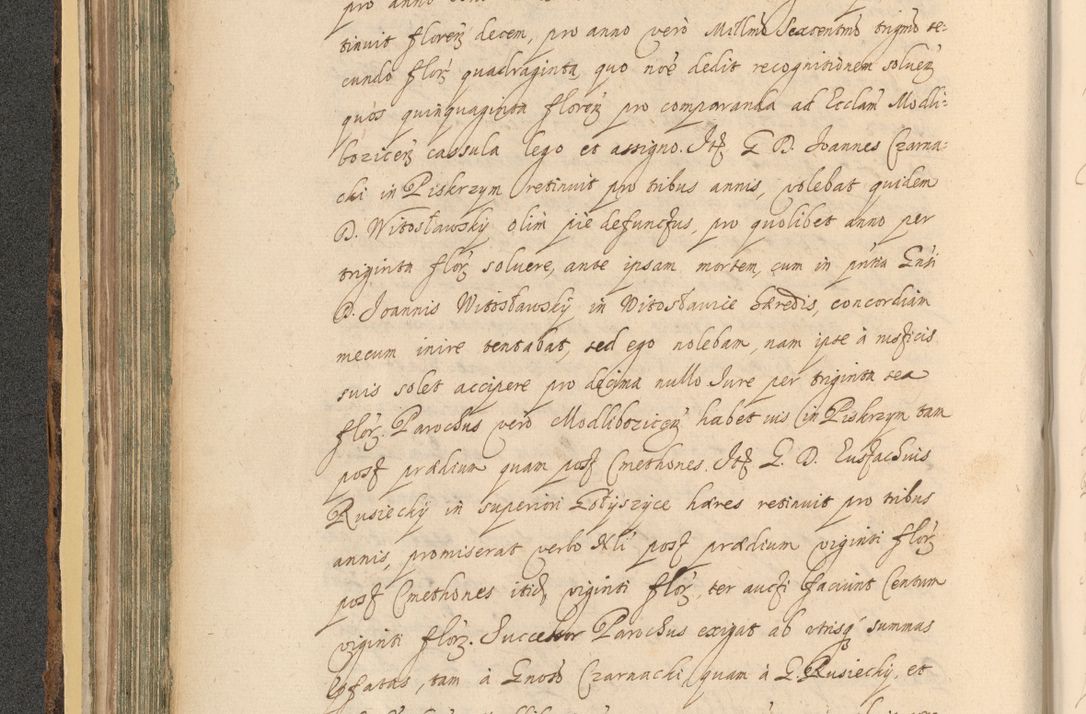 pro anno
tinuit floren̄ decem, pro anno verò Millmò Sexcentmò trigmò se-
cundò flor̄ quadraginta, quo noè dedit recognitionem soluen̄
quòs quinquaginta floren̄ pro comparanda ad Ecclam Modli-
bozicen̄ cassula lego et assigno. Itt̄ G D. Joannes Czarna-
cki in Piskrzyn retinuit pro tribus annis, volebat quidem
D. Witosławsky olim piè defunctus, pro quolibet anno per
triginta flor̄ soluere, ante ipsam mortem, cum in pntia Gnsi
D. Joannis Witosławsky in Witosławice hæredis, concordiam
mecum inire tentabat, sed ego nolebam, nam ipse à rusticis
suis solet accipere pro decima nullo Jure per triginta sex
flor̄. Parochus verò Modlibozicen̄ habet uis in Piskrzyn tam
post prædium quam post Cmethones. Itt̄ G. D. Eustachius
Rusiecky in superiori Gołyszyce hæres retinuit pro tribus
annis, promiserat verbò Nli post prædium viginti flor̄
post Cmethones itid, viginti flor̄, ter aucti faciunt Centum
viginti flor̄. Successor Parochus exigat ab utrisq́ summas
pfatas, tam à Gnoso Czarnacki, quam à G. Rusiecky, et